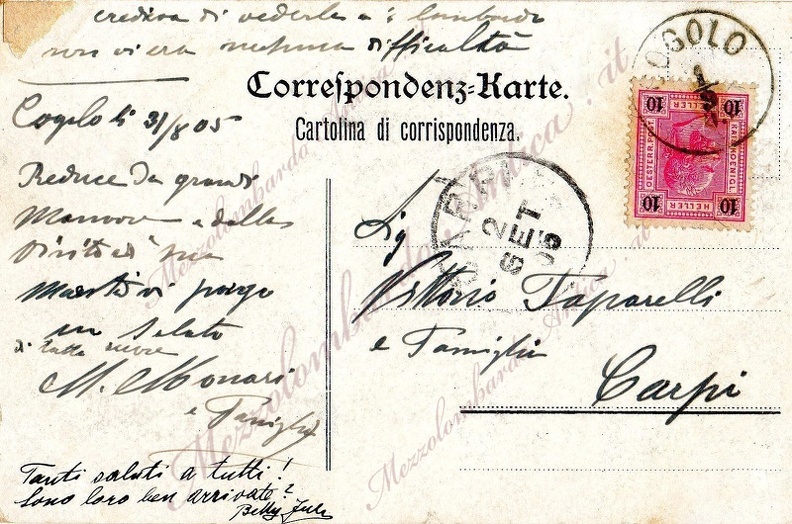 credeva di vederla a Lombardo
non vi era nessuna difficoltà
Correspondenz-Karte.
Cartolina di corrispondenza.
COGOLO
10 10
HELLER
OESTERR. POST
KAIS. KOENIGL.
HELLER
10 10
Cogolo li 31/8 05
Reduce da grandi
Manovre e dalla
visita di
vi porgo
un saluto
di tutto cuore
M. Monari
e Famiglia
Tanti saluti a tutti!
Sono loro ben arrivate?
Betty
CARPI
2
SET
05
Sig
Vittorio Taparelli
e Famiglia
Carpi
Mezzolombardo Antica . it
Mezzolombardo Antica . it